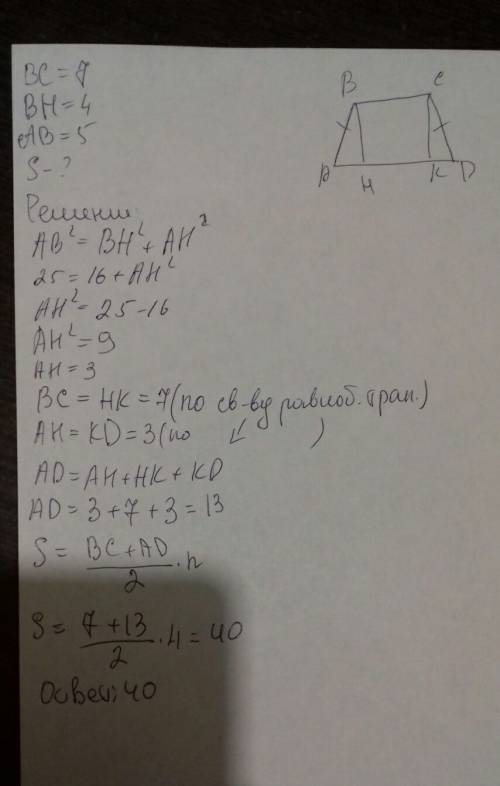 BC = 7
BH = 4
AB = 5
S - ?
Решение:
AB² = BH² + AH²
25 = 16 + AH²
AH² = 25 - 16
AH² = 9
AH = 3
BC = HK = 7 (по св-ву равноб. трап.)
AH = KD = 3 (по ↙ )
AD = AH + HK + KD
AD = 3 + 7 + 3 = 13
S = (BC + AD)/2 · h
S = (7 + 13)/2 · 4 = 40
Ответ: 40
B
C
A
H
K
D